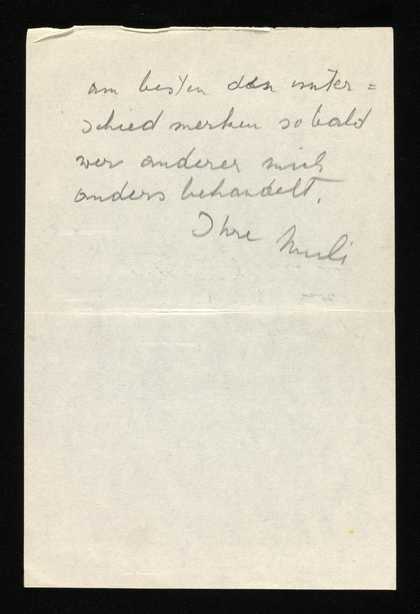 am besten den unter=
schied merken sobald
wer anderer mich
anders behandelt.
Ihre